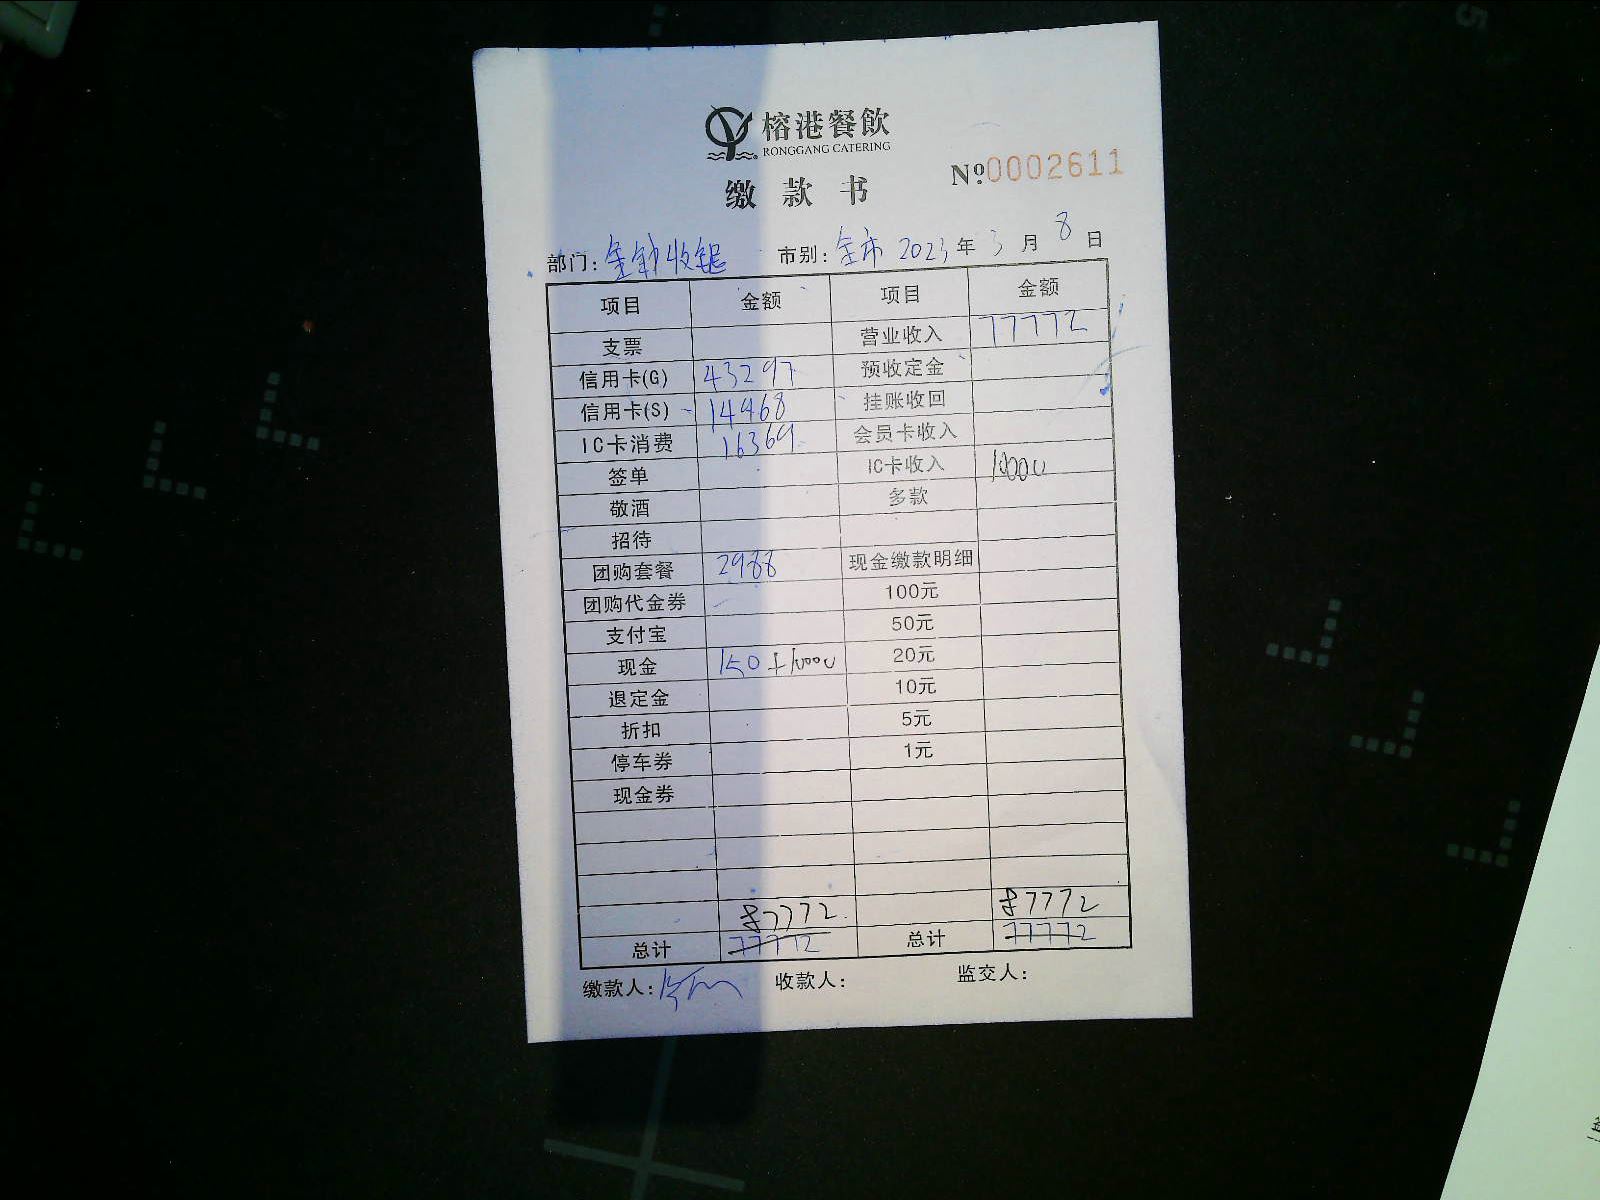 榕港餐飲
RONGGANG CATERING
缴款书
Nº:0002611
部门: 收银 市别: 全市 2023年3月8日
项目 金额 项目 金额
支票 营业收入 77772
信用卡(G) 43297 预收定金
信用卡(S) 14968 挂账收回
IC卡消费 16369 会员卡收入
签单 IC卡收入 10000
敬酒 多款
招待
团购套餐 2988 现金缴款明细
团购代金券 100元
支付宝 50元
现金 150+10000 20元
退定金 10元
折扣 5元
停车券 1元
现金券
87772 87772
总计 77772 总计 77772
缴款人: 收款人: 监交人: